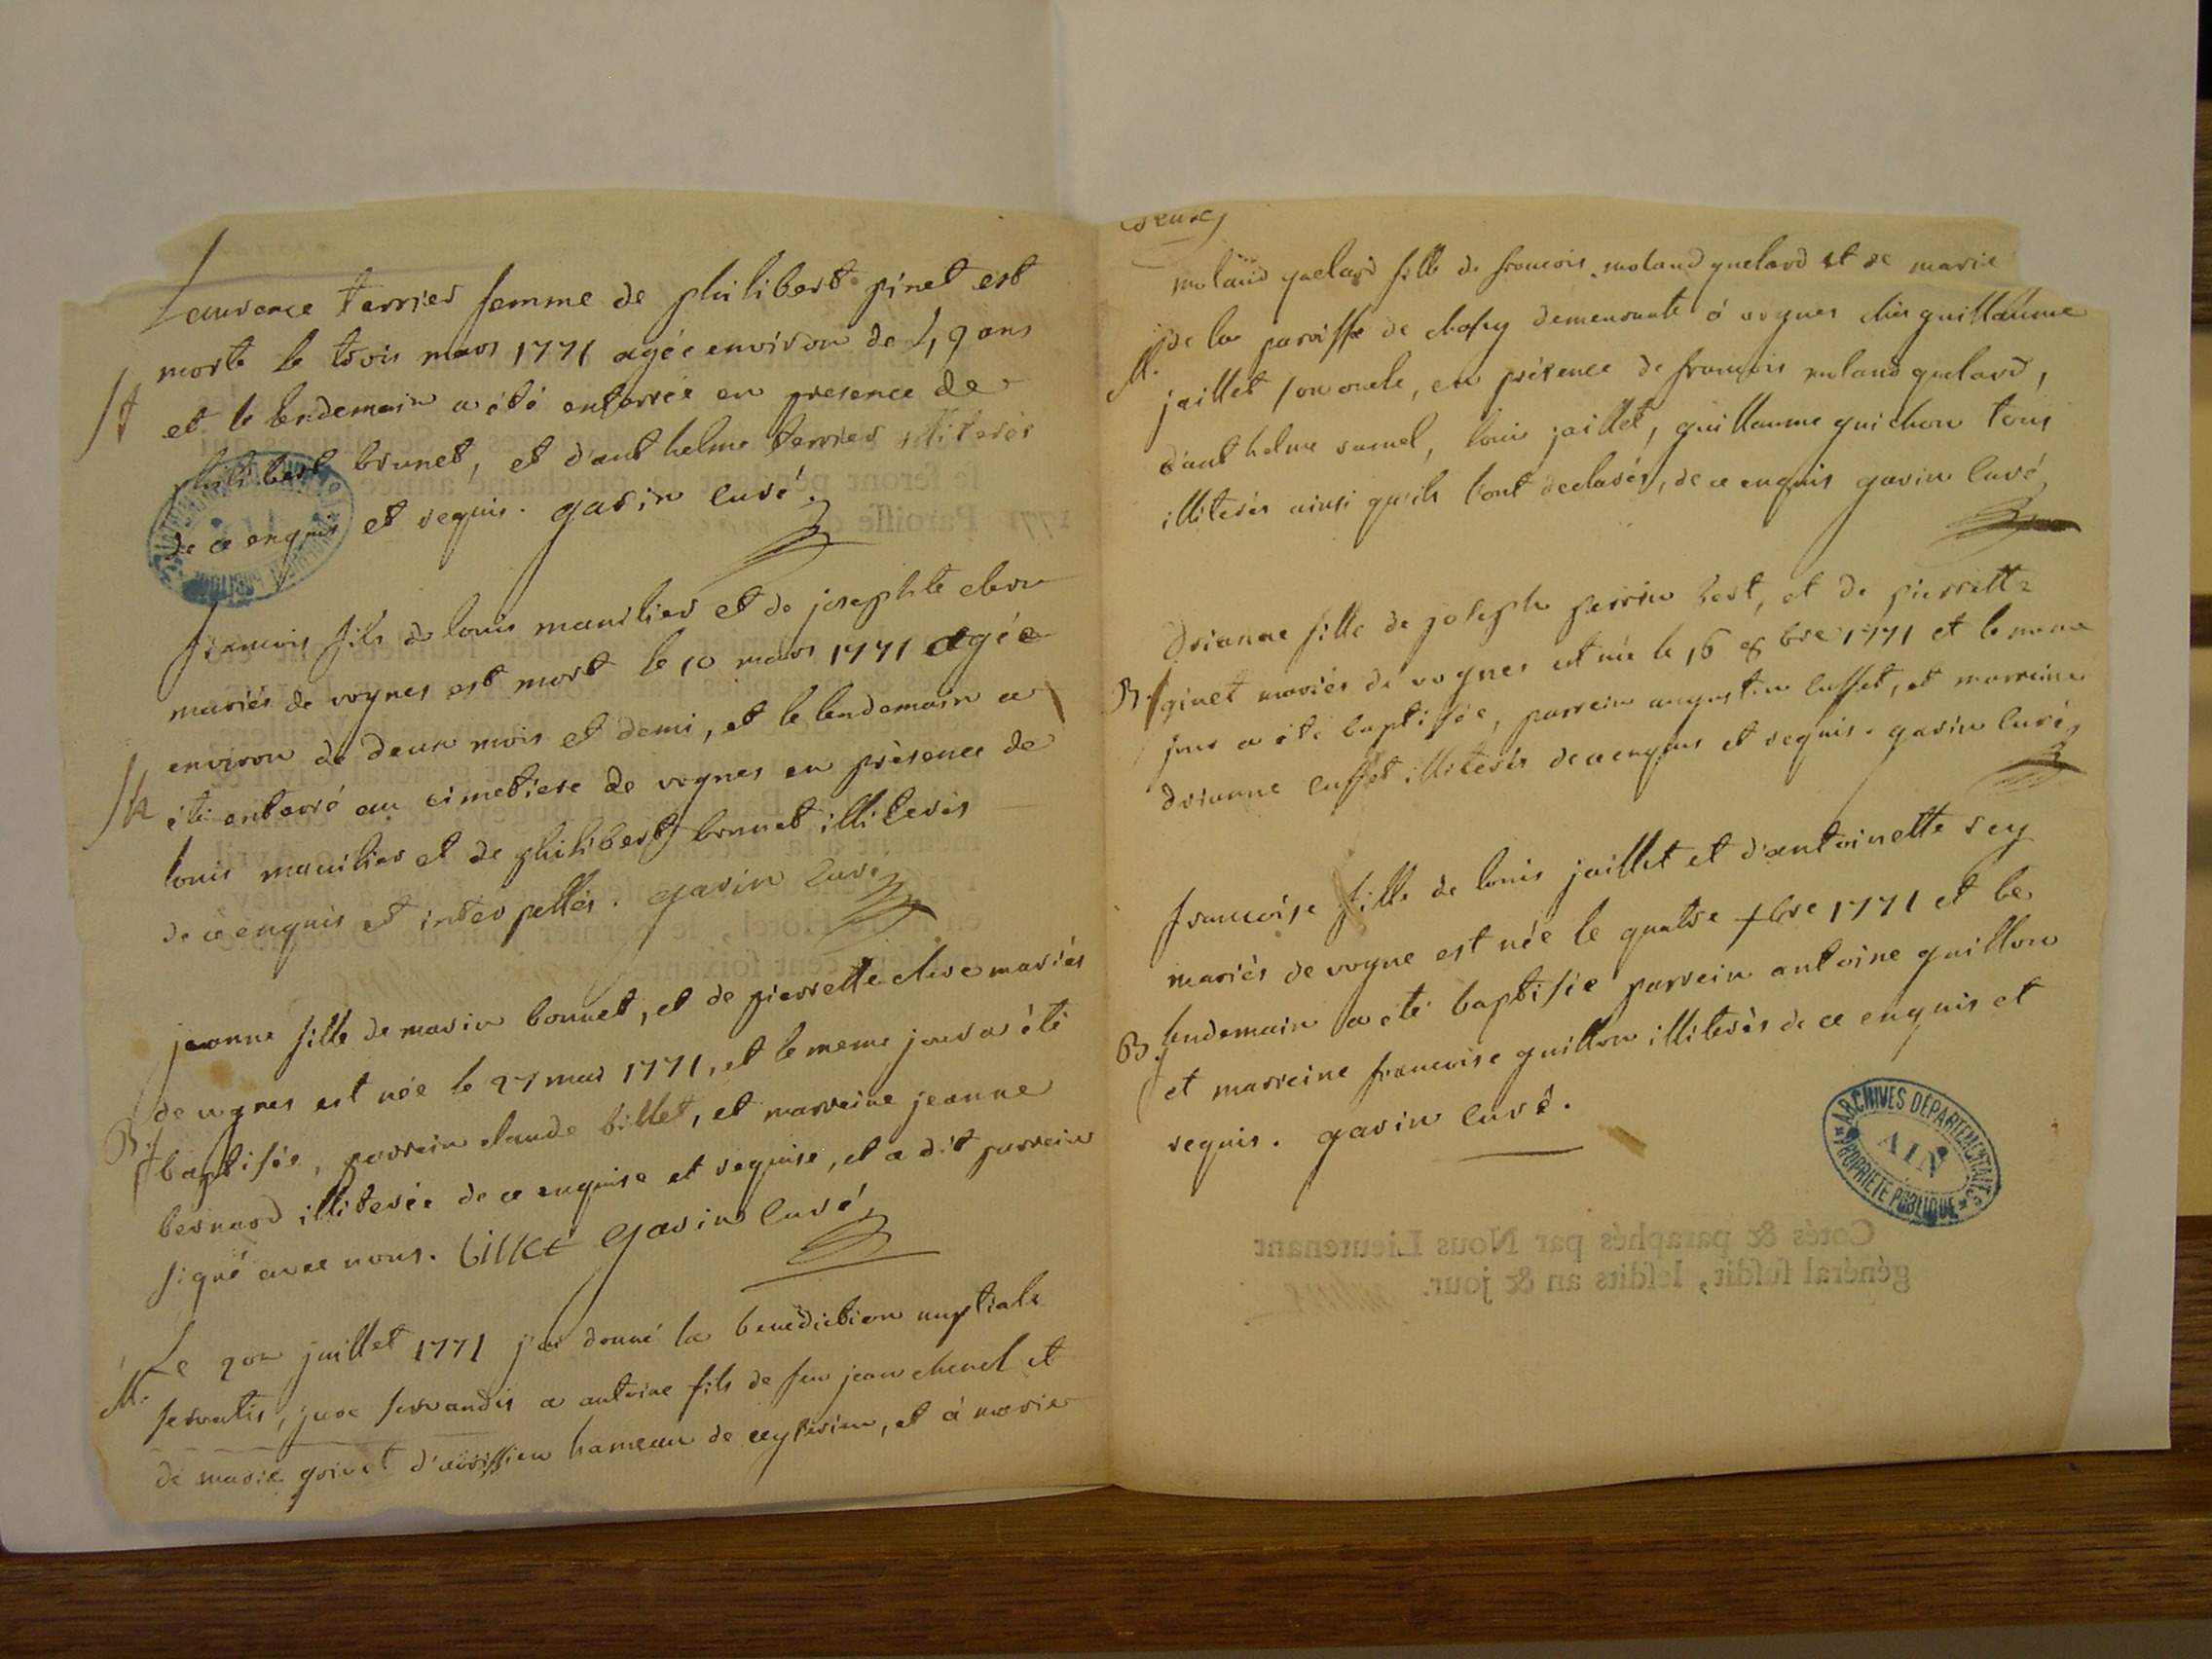 Laurence terrier femme de philibert pinet est
morte le trois mars 1771 agée environ de 49 ans
et le lendemain a été enterrée en presence de
philibert brunet, et d'anthelme terrier illiterés
de ce enquis et requis. garin curé
francois fils de louis manilier et de josephte
mariés de vognes est mort le 10 mars 1771 agée
environ de deux mois et demi, et le lendemain a
été enterré au cimetiere de vognes en présence de
louis manilier et de philibert brunet illiterés
de ce enquis et interpellés. garin curé
jeanne fille de marin bonnet, et de pierrette mariés
de vognes est née le 27 mai 1771, et le meme jour a été
B. baptisée, parrein claude billet, et marreine jeanne
bernard illiterée de ce enquise et requise, et a dit parrein
signé avec nous. billet garin curé
M. Le juillet 1771 j'ai donné la benediction nuptiale
servatis, jure servandis a antoine fils de feu jean chenel et
de marie grivet hameau de ceyzerieu, et à marie
moland guelard fille de francois moland guelard et de marie
M. de la paroisse de demeurante à vognes chés guillaume
jaillet son oncle, en présence de francois moland guelard,
d'anthelme ramel, louis jaillet, guillaume guichon tous
illiterés ainsi qu'ils l'ont declarés, de ce enquis garin curé
drianne fille de joseph perrin, et de pierrette
B. ginet mariés de vognes est née le 16 8bre 1771 et le meme
jour a été baptisée, parrein augustin cusset, et marreine
drianne cusset illiterés de ce enquis et requis. garin curé
francoise fille de louis jaillet et d'antoinette rey
mariés de vogne est née le quatre 7bre 1771 et le
B. lendemain a été baptisée parrein antoine guillon
et marreine francoise guillon illiterés de ce enquis et
requis. garin curé.
ARCHIVES DEPARTEMENTALES
AIN
PROPRIETE PUBLIQUE
Cotés & paraphés par Nous Lieutenant
général susdit, lesdits an & jour.